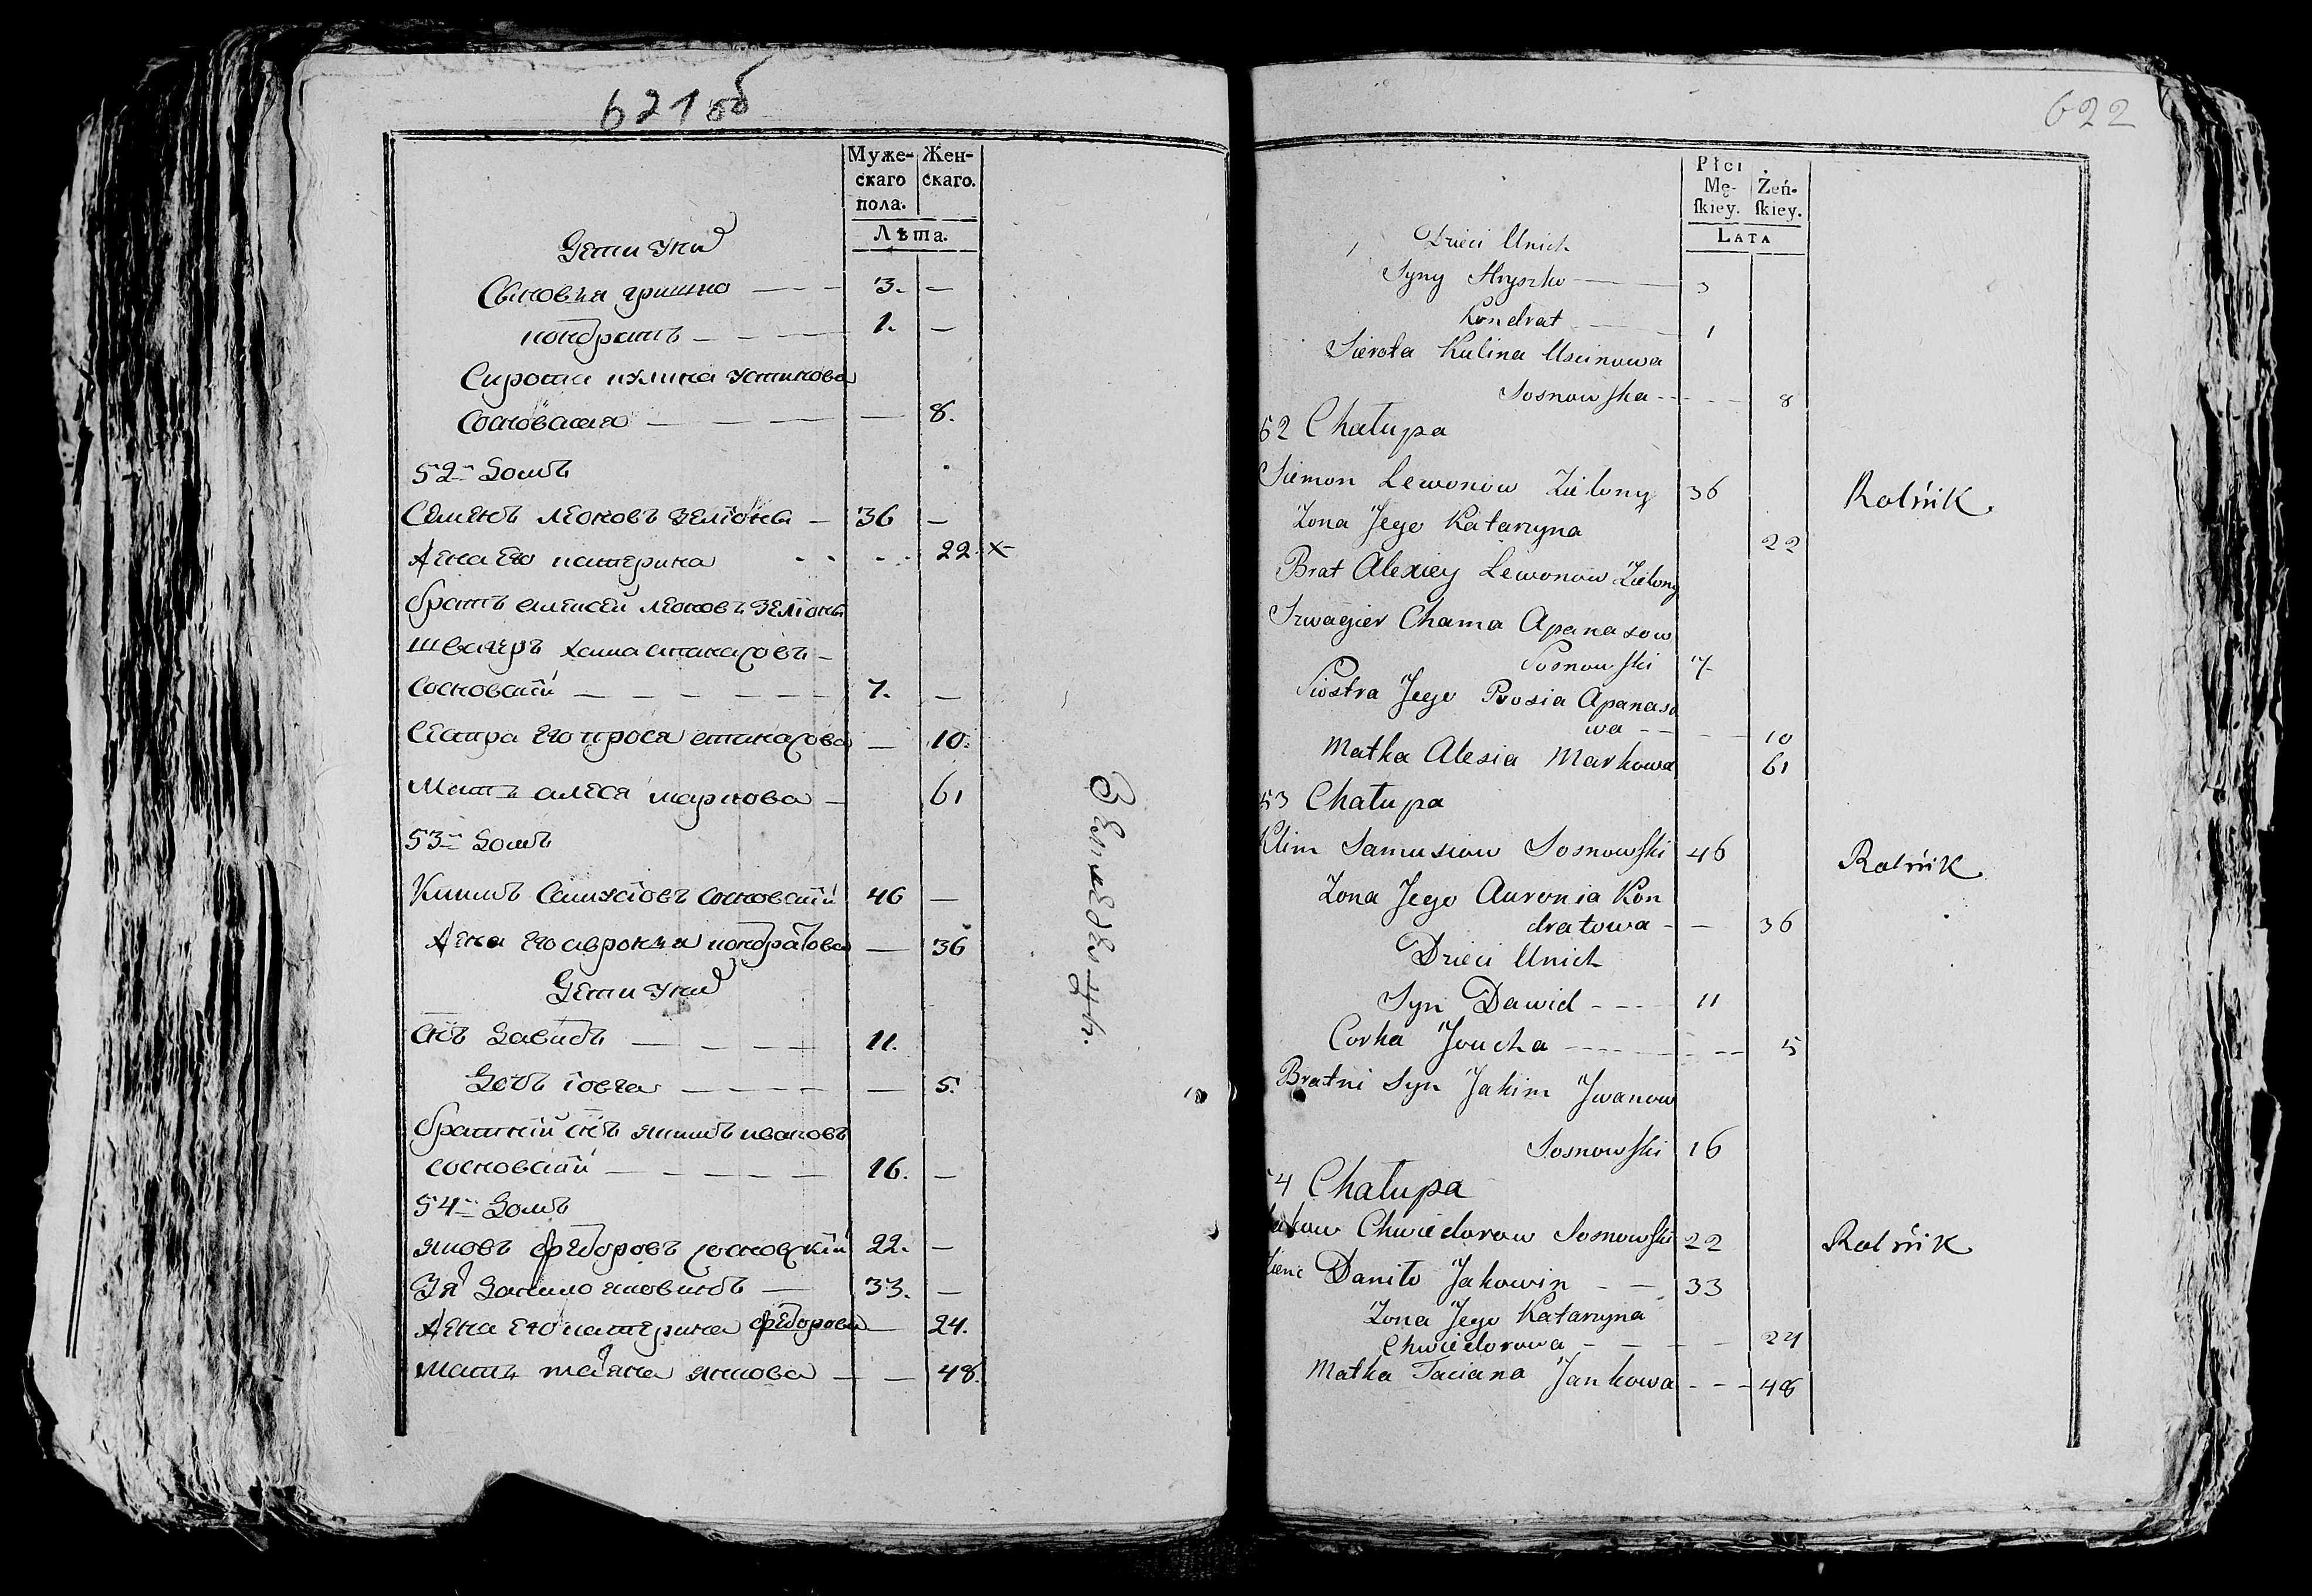 621 об
Муже- Жен-
скаго скаго.
пола.
Лѣта.
Дети ихъ
Сыновья гришко 3. —
кондратъ 1. —
Сирота кулина устинова
Сосновская — 8.
52 Домъ
Семенъ леоновъ зелiоны 36 —
Жена Его катерина 22. х
братъ алексей леоновъ зелiоны
швагеръ хама апанасовъ
сосновскiй 7. —
Сестра Его прося апанасова — 10.
Мать алеся маркова 61
53 Домъ
Климъ Самусiовъ сосновскiй 46 —
Жена Его авронья кондратова — 36
Дети ихъ
Сiнъ Давидъ 11.
Дочь iовга — 5.
братнiй сiнъ якимъ ивановъ
сосновскiй 16. —
54 Домъ
яковъ федоровъ сосновскiй 22. —
Зя Данило яковинъ 33. —
Жена Его катерина федорова 24.
мать татяна якова — 48.
Земледелецъ.
622
Płci
Mę- Żeń-
ſkiey. ſkiey.
LATA
Dzieci Unich
Syny Hryszko 3
Kondrat 1
Sierota Kulina Uscinowa
Sosnowska 8
52 Chałupa
Siemon Lewonow Zielony 36 Rolnik
Zona Jego Katarzyna 22
Brat Alexiey Lewonow Zielony
Szwagier Chama Apanasow
Sosnowski 7
Siostra Jego Prosia Apanaso
wa 10
Matka Alesia Markowa 61
53 Chałupa
Klim Samusiow Sosnowski 46 Rolnik
Zona Jego Auronia Kon
dratowa 36
Dzieci Unich
Syn Dawid 11
Corka Joucha 5
Bratni Syn Jakim Jwanow
Sosnowski 16
54 Chałupa
Chwiedorow Sosnowski 22 Rolnik
Daniło Jakowin 33
Zona Jego Katarzyna
Chwiedorowa 24
Matka Taciana Jankowa 48